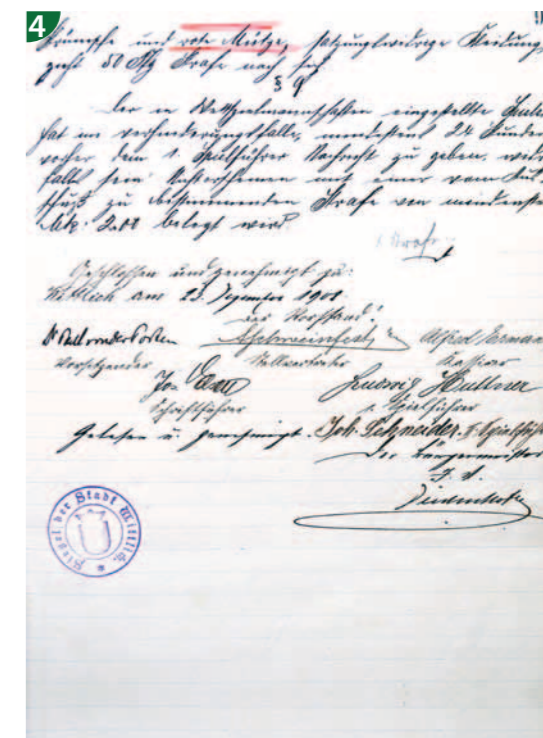 4
Strümpfe und rote Mütze, satzungswidrige Kleidung
zieht 50 Pfg Strafe nach sich.
§ 9
Der in Wettspielmannschaften eingestellte Spieler
hat im Verhinderungsfalle, mindestens 24 Stunden
vorher dem 1. Spielführer Nachricht zu geben, widri
falls sein Nichterscheinen mit einer vom Aus-
schuß zu bestimmenden Strafe von mindestens
Mk: 2.00 belegt wird.
Strafe
Beschlossen und genehmigt zu:
Wittlich am 23. September 1901
Der Vorstand:
Alfred
Vorsitzender Stellvertreter Kassirer
Jos Ludwig Hullner
Schriftführer 1. Spielführer
Gelesen u. genehmigt. Joh. Schneider. II. Spielführ
Der Bürgermeister
I. V.
Siegel der Stadt Wittlich